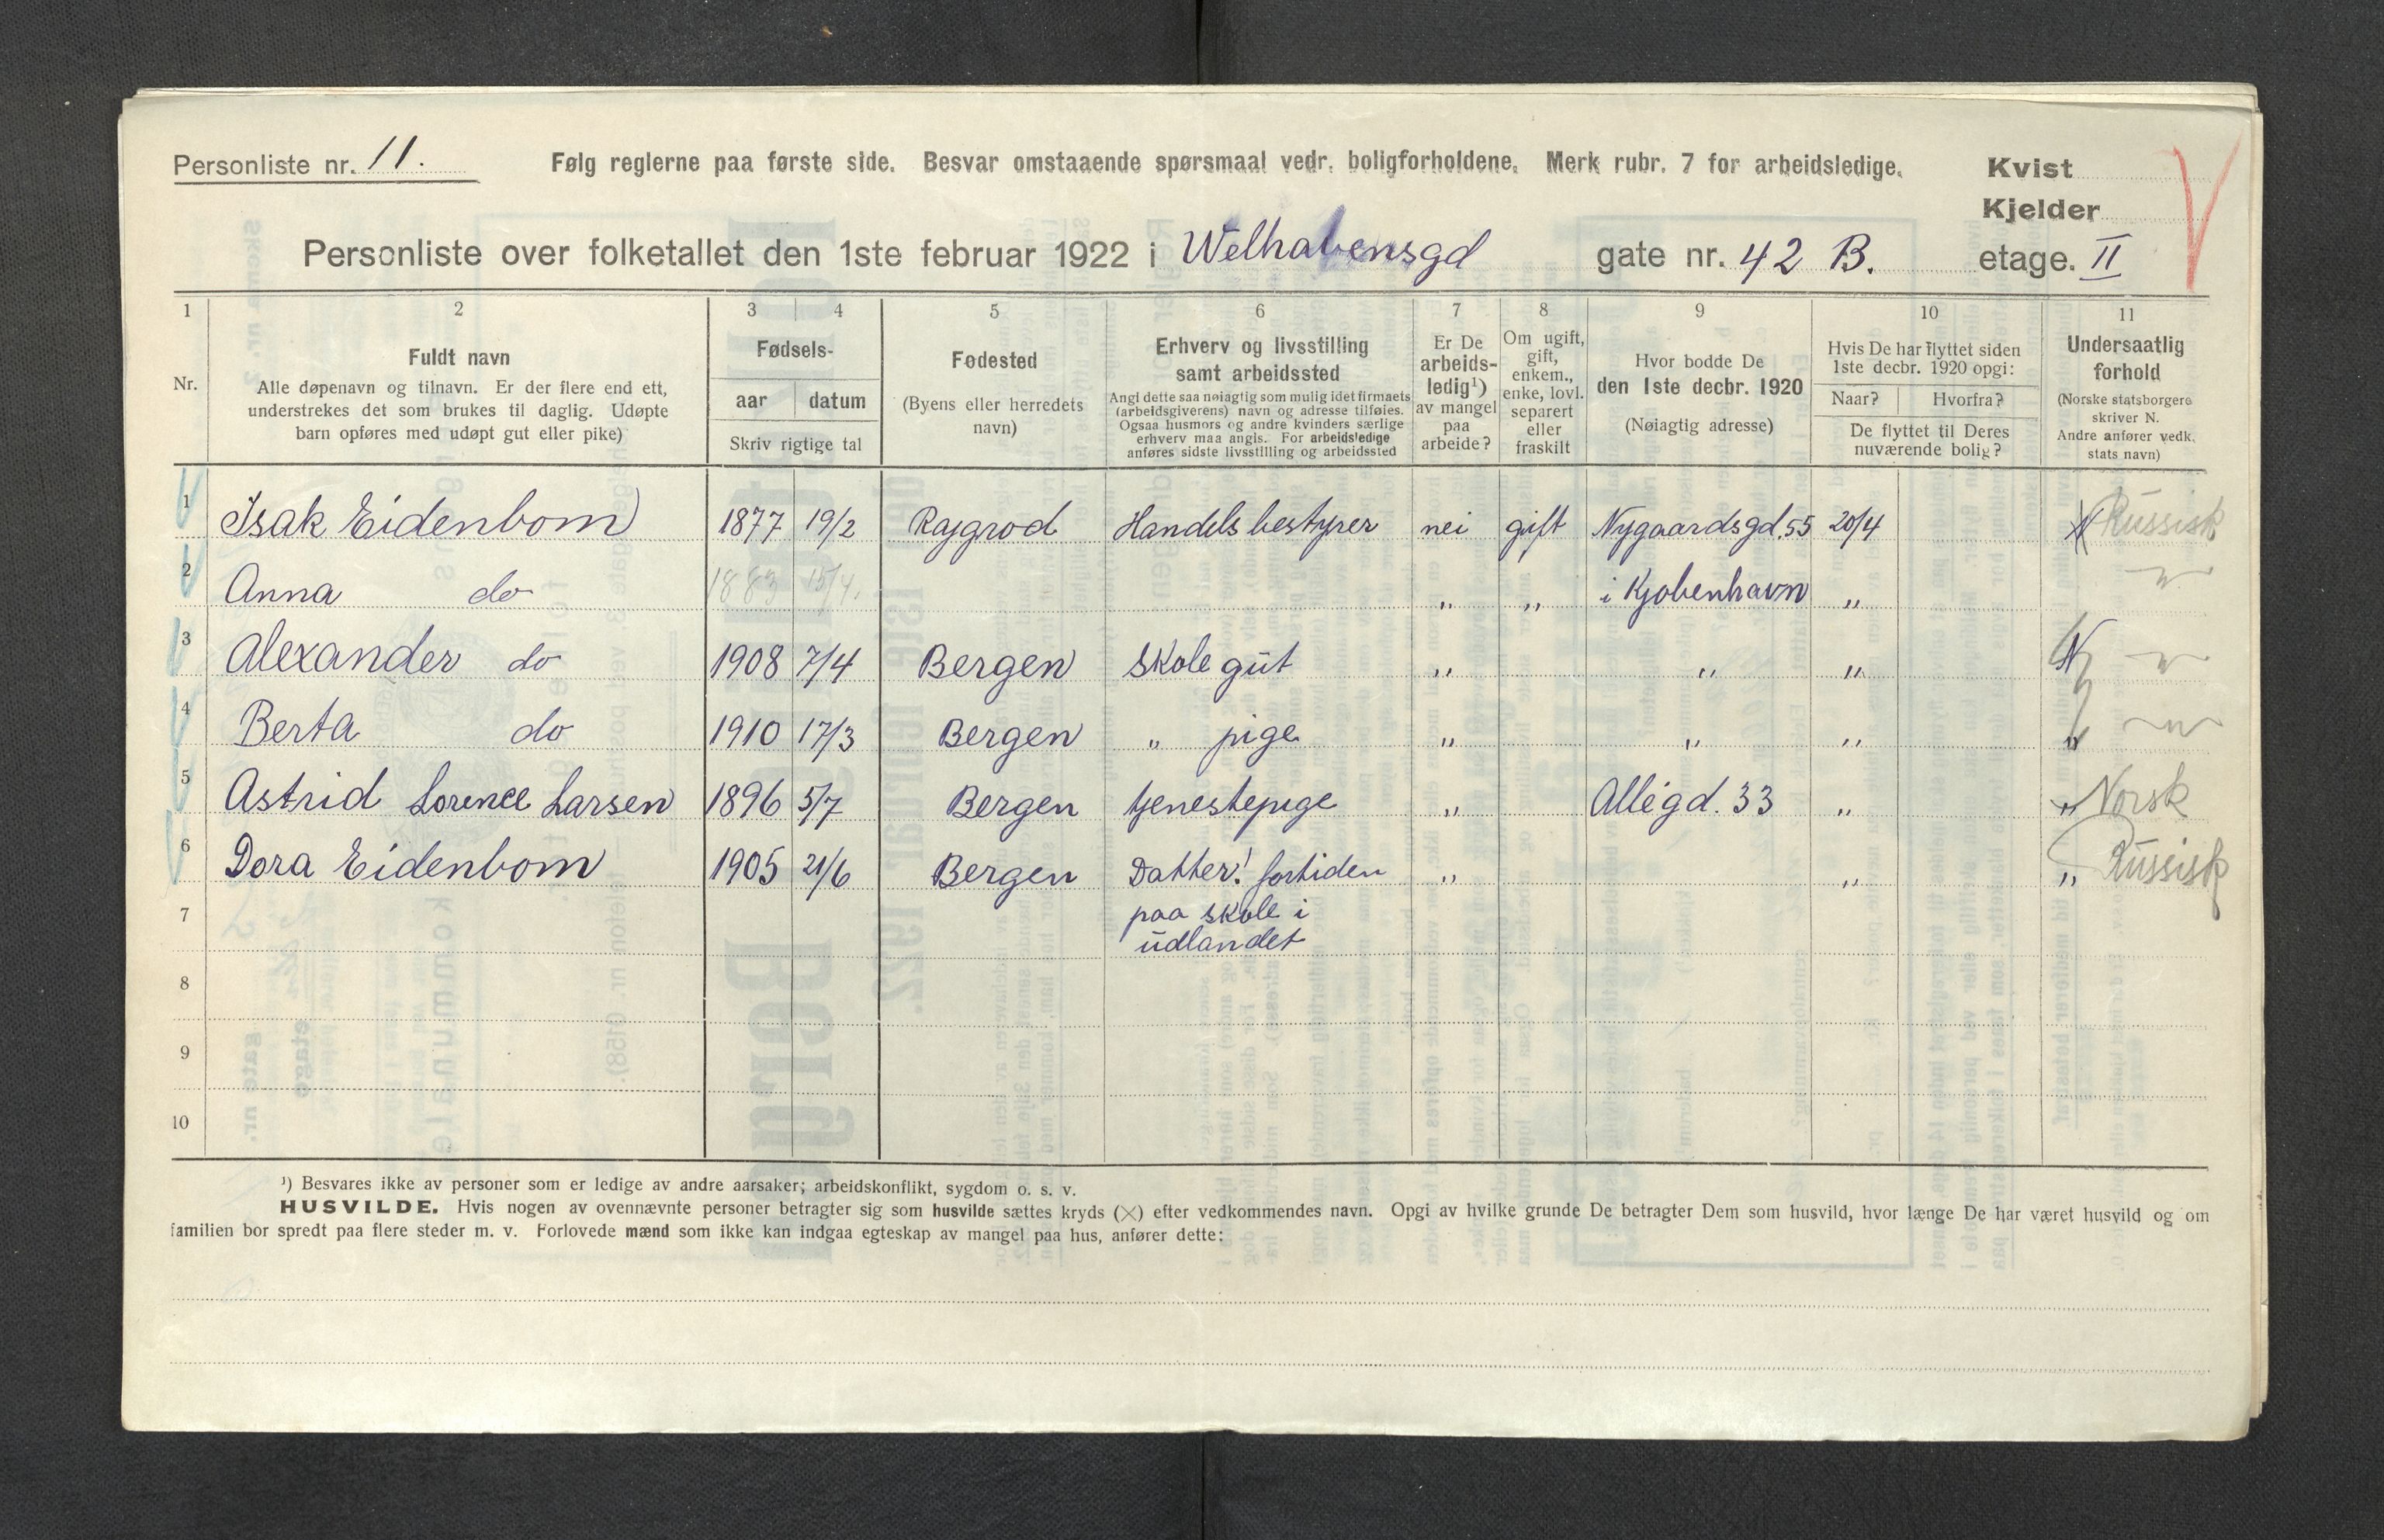 Personliste nr. 11.
Følg reglerne paa første side. Besvar omstaaende spørsmaal vedr. boligforholdene. Merk rubr. 7 for arbeidsledige.
Kvist
Kjelder
Personliste over folketallet den 1ste februar 1922 i Welhavensgd gate nr. 42 B. etage. II
1 2 3 4 5 6 7 8 9 10 11
Nr.
Fuldt navn
Alle døpenavn og tilnavn. Er der flere end ett,
understrekes det som brukes til daglig. Udøpte
barn opføres med udøpt gut eller pike)
Fødsels-
aar datum
Skriv rigtige tal
Fødested
(Byens eller herredets
navn)
Erhverv og livsstilling
samt arbeidssted
Angi dette saa nøiagtig som mulig idet firmaets
(arbeidsgiverens) navn og adresse tilføies.
Ogsaa husmors og andre kvinders særlige
erhverv maa angis. For arbeidsledige
anføres sidste livsstilling og arbeidssted
Er De
arbeids-
ledig¹)
av mangel
paa
arbeide?
Om ugift,
gift,
enkem.,
enke, lovl.
separert
eller
fraskilt
Hvor bodde De
den 1ste decbr. 1920
(Nøiagtig adresse)
Hvis De har flyttet siden
1ste decbr. 1920 opgi:
Naar? Hvorfra?
De flyttet til Deres
nuværende bolig?
Undersaatlig
forhold
(Norske statsborgere
skriver N.
Andre anfører vedk.
stats navn)
1 Isak Eidenbom 1877 19/2 Rajgrod Handelsbestyrer nei gift Nygaardsgd. 55 20/4 N Russisk
2 Anna do 1883 15/4. " " i Kjøbenhavn "
3 Alexander do 1908 7/4 Bergen Skolegut " " " N
4 Berta do 1910 17/3 Bergen " pige " " " "
5 Astrid Lorence Larsen 1896 5/7 Bergen tjenestepige " Allégd. 33 " " Norsk
6 Dora Eidenbom 1905 21/6 Bergen Datter! fortiden " " " Russisk
7 paa skole i
udlandet
8
9
10
¹) Besvares ikke av personer som er ledige av andre aarsaker; arbeidskonflikt, sygdom o. s. v.
HUSVILDE. Hvis nogen av ovennævnte personer betragter sig som husvilde sættes kryds (×) efter vedkommendes navn. Opgi av hvilke grunde De betragter Dem som husvild, hvor længe De har været husvild og om
familien bor spredt paa flere steder m. v. Forlovede mænd som ikke kan indgaa egteskap av mangel paa hus, anfører dette: